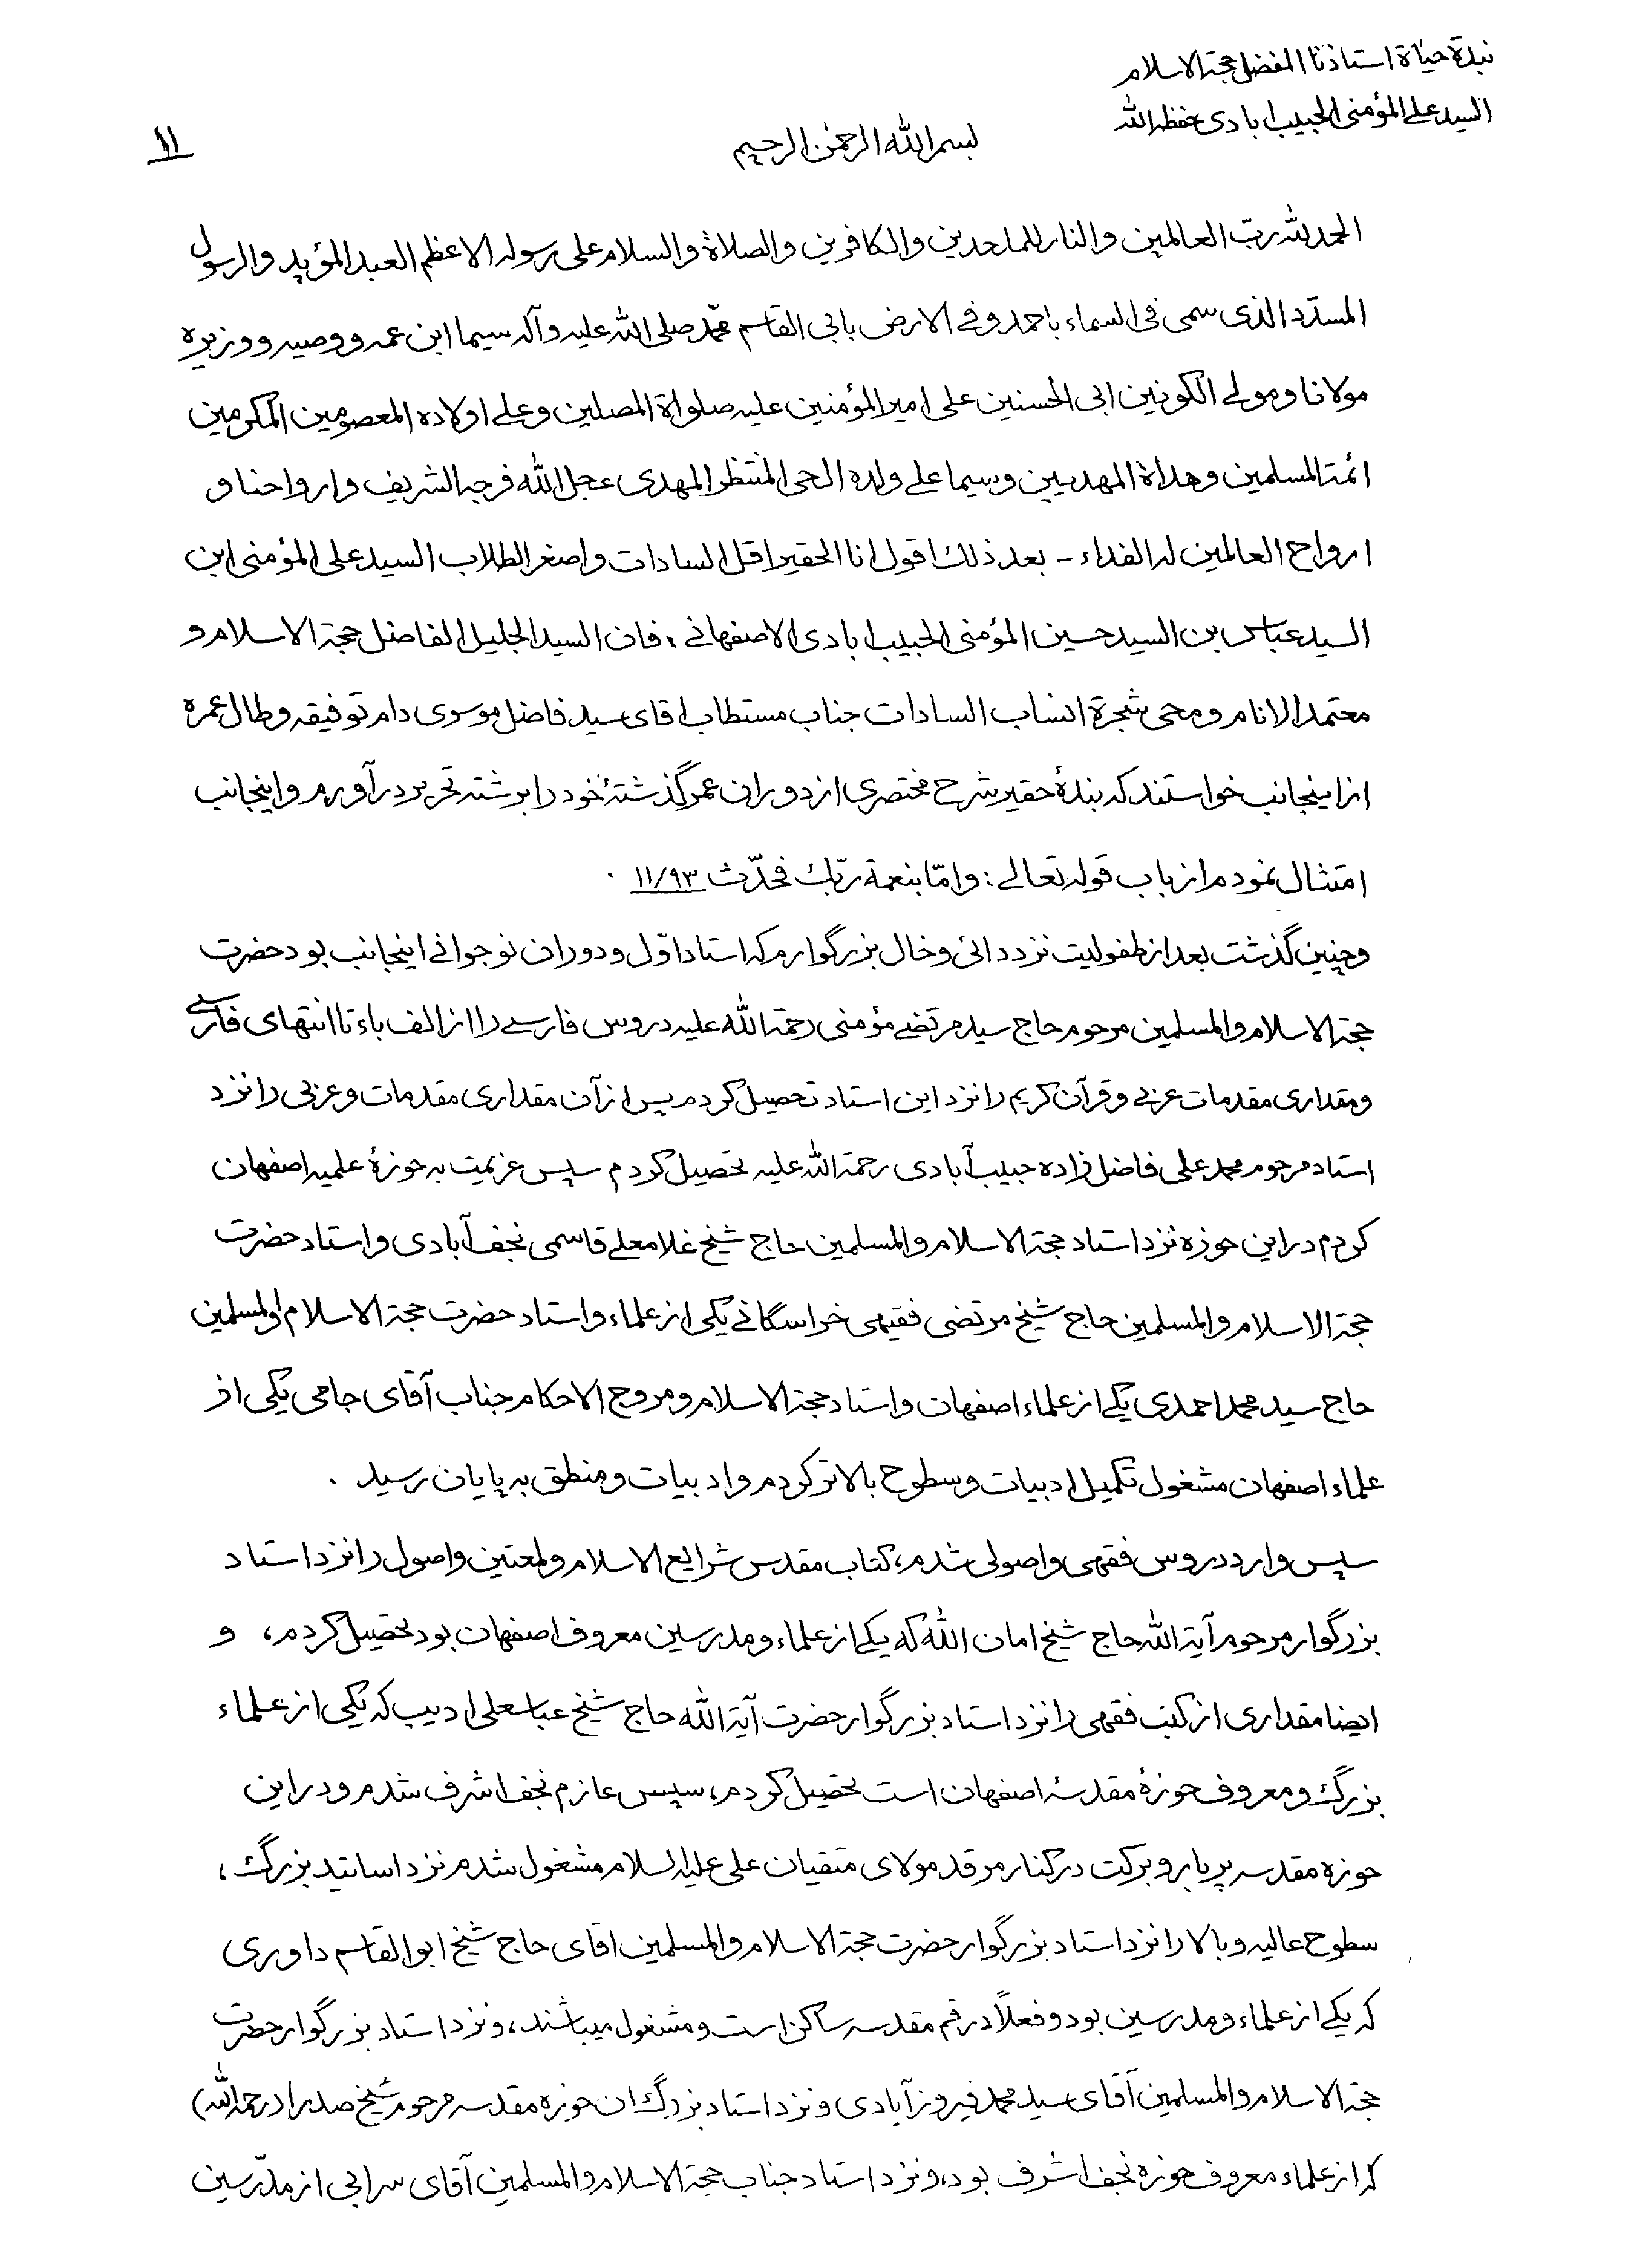 نبذة حياة استاذنا المفضل حجة الاسلام
السيد علی المؤمنی الحبيب ابادی حفظه الله
بسم الله الرحمن الرحيم
١١
الحمد لله ربّ العالمين والنار للملحدين والكافرين والصلاة والسلام علی رسوله الاعظم العبد المؤيد والرسول
المسدّد الذی سمی فی السماء باحمد وفی الارض بابی القاسم محمّد صلی الله عليه وآله سيما ابن عمه ووصيه ووزيره
مولانا ومولی الكونين ابی الحسنين علی امير المؤمنين عليه صلواة المصلين وعلی اولاده المعصومين المكرمين
ائمة المسلمين وهداة المهديين وسيما علی ولده الحی المنتظر المهدی عجل الله فرجه الشريف وارواحنا و
ارواح العالمين له الفداء - بعد ذلك اقول انا الحقير اقل السادات واصغر الطلاب السيد علی المؤمنی ابن
السيد عباس بن السيد حسين المؤمنی الحبيب ابادی الاصفهانی ؛ فان السيد الجليل الفاضل حجة الاسلام و
معتمد الانام ومحی شجرة انساب السادات جناب مستطاب اقای سيد فاضل موسوی دام توفيقه وطال عمره
از اينجانب خواستند كه بندۀ حقير شرح مختصری از دوران عمر گذشتۀ خود را برشته تحرير درآورم واينجانب
امتثال نمودم از باب قوله تعالی : وامّا بنعمة ربّك فحدّث ١١/٩٣ .
وچنين گذشت بعد از طفوليت نزد دائی وخال بزرگوارم كه استاد اوّل ودوران نوجوانی اينجانب بود حضرت
حجة الاسلام والمسلمين مرحوم حاج سيد مرتضی مؤمنی رحمة الله عليه دروس فارسی را از الف باء تا انتهای فارسی
ومقداری مقدمات عربی وقرآن كريم را نزد اين استاد تحصيل كردم پس از آن مقداری مقدمات وعربی را نزد
استاد مرحوم محمد علی فاضل زاده حبيب آبادی رحمة الله عليه تحصيل كردم سپس عزيمت به حوزۀ علميه اصفهان
كردم در اين حوزه نزد استاد حجة الاسلام والمسلمين حاج شيخ غلامعلی قاسمی نجف آبادی واستاد حضرت
حجة الاسلام والمسلمين حاج شيخ مرتضی فقيهی خراسگانی يكی از علماء واستاد حضرت حجة الاسلام والمسلمين
حاج سيد محمد احمدی يكی از علماء اصفهان واستاد حجة الاسلام ومروج الاحكام جناب آقای جامی يكی از
علماء اصفهان مشغول تكميل ادبيات وسطوح بالاتر كردم وادبيات ومنطق به پايان رسيد .
سپس وارد دروس فقهی واصولی شدم، كتاب مقدس شرايع الاسلام ولمعتين واصول را نزد استاد
بزرگوار مرحوم آية الله حاج شيخ امان الله كه يكی از علماء ومدرسين معروف اصفهان بود تحصيل كردم، و
ايضا مقداری از كتب فقهی را نزد استاد بزرگوار حضرت آية الله حاج شيخ عباسعلی اديب كه يكی از علماء
بزرگ ومعروف حوزۀ مقدسۀ اصفهان است تحصيل كردم، سپس عازم نجف اشرف شدم ودر اين
حوزه مقدسه پر بار وبركت در كنار مرقد مولای متقيان علی عليه السلام مشغول شدم نزد اساتيد بزرگ،
سطوح عاليه وبالا را نزد استاد بزرگوار حضرت حجة الاسلام والمسلمين اقای حاج شيخ ابوالقاسم داوری
كه يكی از علماء ومدرسين بود وفعلاً در قم مقدسه ساكن است ومشغول ميباشند، ونزد استاد بزرگوار حضرت
حجة الاسلام والمسلمين آقای سيد محمد فيروزآبادی ونزد استاد بزرگ ان حوزه مقدسه مرحوم شيخ صدرا (رحمه الله)
كه از علماء معروف حوزه نجف اشرف بود، ونزد استاد جناب حجة الاسلام والمسلمين آقای سرابی از مدّرسين